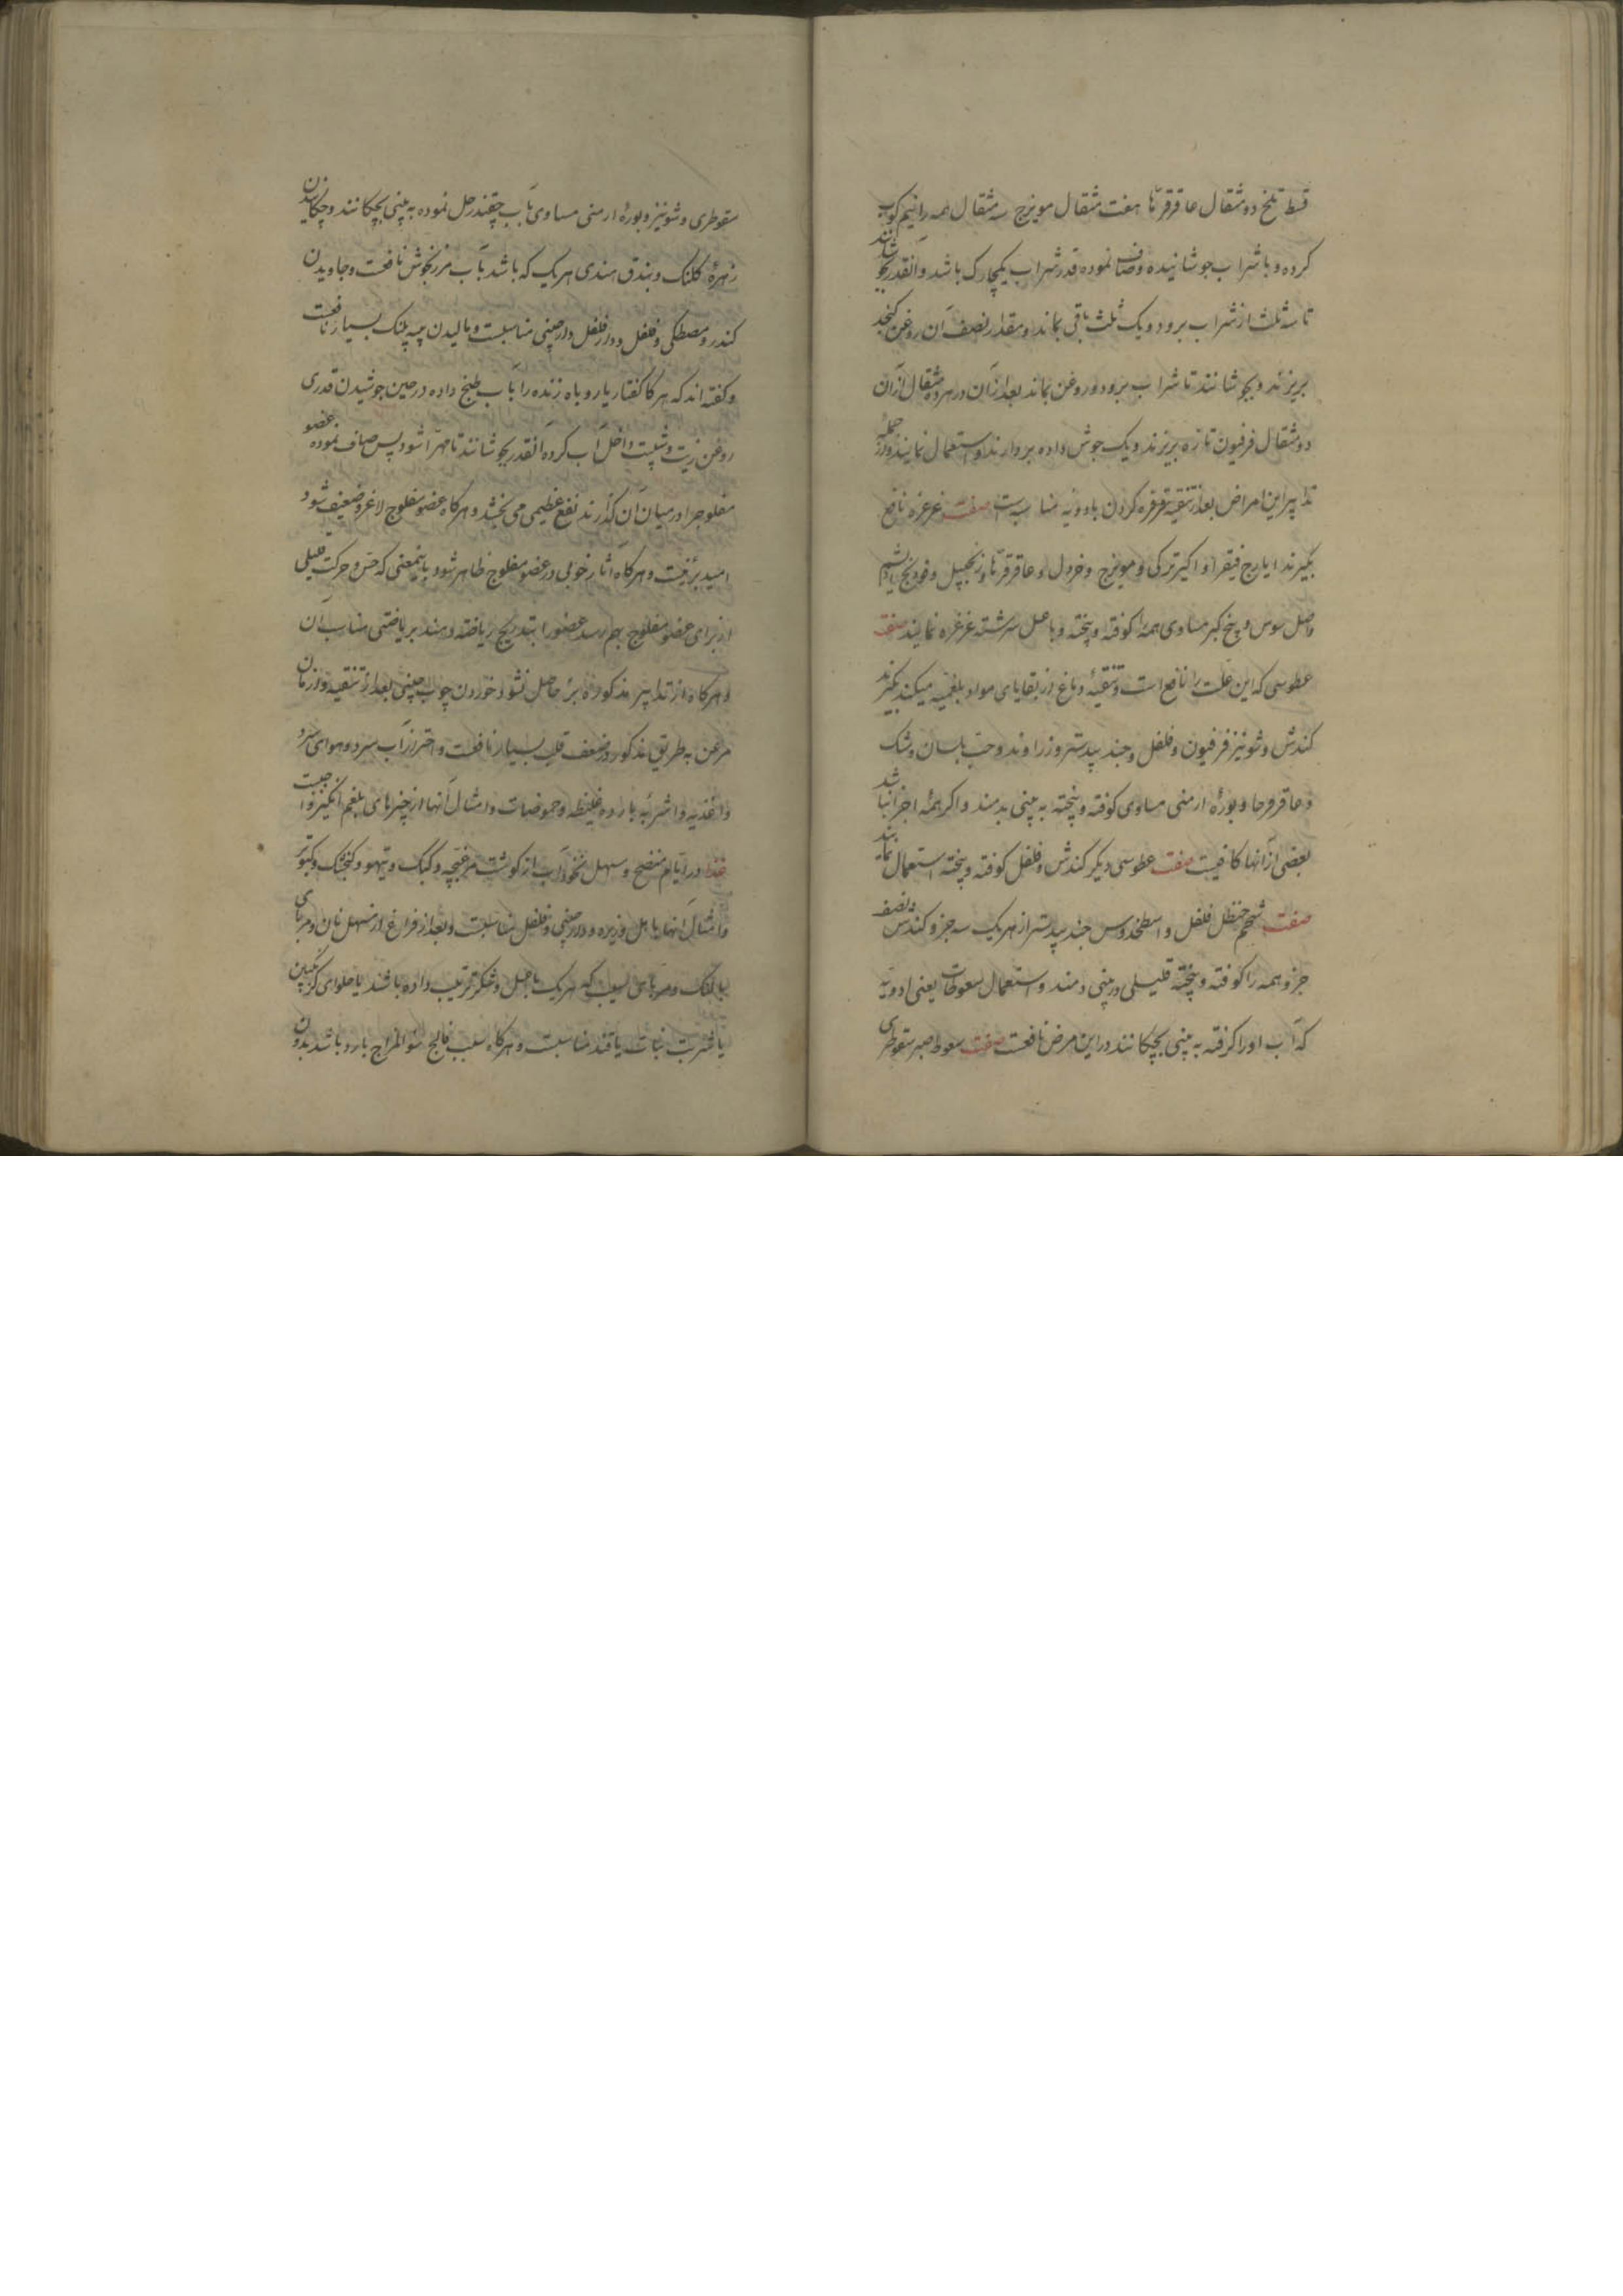 قسط تلخ دو مثقال عاقرقرحا هفت مثقال مویزج سه مثقال همه را نیم کوب
کرده و با شراب جوشانیده و صاف نموده قدر شراب یکچارک باشد و آنقدر بجوشانند
تا سه ثلث از شراب برود و یک ثلث باقی بماند و مقدار نصف آن روغن کنجد
بریزند و بجوشانند تا شراب برود و روغن بماند بعد از آن در هر ده مثقال از آن
دو مثقال فرفیون تازه بریزند و یک جوش داده بردارند و استعمال نمایند و از جمله
تدابیر این امراض بعد از تنقیه غرغره کردن بادویه مناسبه است صفت غرغره نافع
بگیرند ایارج فیقرا و اکیر ترکی و مویزج و خردل و عاقرقرحا و زنجبیل و فودنج
واصل سوس و بیخ کبر مساوی همه را کوفته و بیخته و با عسل سرشته غرغره نمایند صفت
عطوسی که این علت را نافع است و تنقیهٔ دماغ از بقایای مواد بلغمیه میکند بگیرند
کندش و شونیز فرفیون و فلفل و جند بیدستر و زراوند و حب بلسان و مشک
و عاقرقرحا و بورهٔ ارمنی مساوی کوفته و بیخته به بینی بدمند و اگر همه اجزا نباشد
بعضی از آنها کافیست صفت عطوسی دیگر کندش و فلفل کوفته و بیخته استعمال نمایند
صفت شحم حنظل فلفل و اسطخدوس جند بیدستر از هر یک سه جزو کندش نصف
جزو همه را کوفته و بیخته قلیلی در بینی دمند و استعمال سعوطات یعنی ادویهٔ
که آب او را گرفته به بینی بچکانند در این مرض نافعست صفت سعوط صبر سقوطری
سقوطری و شونیز و بورهٔ ارمنی مساوی بآب چقندر حل نموده به بینی بچکانند و چکانیدن
زهرهٔ کلنک و بندق هندی هر یک که باشد بآب مرزنجوش نافعست و جاویدن
کندر و مصطکی و فلفل و دارفلفل دارچینی مناسبست و مالیدن پیه پلنک بسیار نافعست
و گفته اند که هرگاه کفتار یا روباه زنده را بآب طبخ داده در حین جوشیدن قدری
روغن زیت و شبت داخل آب کرده آنقدر بجوشانند تا مهرا شود پس صاف نموده عضو
مفلوجرا در میان آن گذارند نفع عظیمی می بخشد و هرگاه عضو مفلوج لاغر و ضعیف شود
امید برء نیست و هرگاه آثار خوبی در عضو مفلوج ظاهر شود باینمعنی که حس و حرکت قلیلی
از برای عضو مفلوج بهم رسد عضو را بتدریج ریاضت دهند بریاضتی مناسب آن
و هرگاه از تدابیر مذکوره برء حاصل نشود خوردن چوب چینی بعد از تنقیه و ازمان
مرض به طریق مذکور در ضعف قلب بسیار نافعست و احتراز از آب سرد و هوای سرد
و اغذیه و اشربه بارده غلیظه و حموضات و امثال آنها از چیزهای بلغم انگیز واجبست
غذا در ایام منضج و مسهل نخوداب از گوشت مرغبچه و کبک و تیهو و کنجشک و کبوتر
و امثال آنها با هل و زیره و دارچینی و فلفل مناسبست و بعد از فراغ از مسهل نان و مربای
بالنگ و مربای سیب که هر یک با عسل و شکر ترتیب داده باشند یا حلوای گزنگبین
یا شربت نبات یا قند مناسبت و هرگاه سبب فالج سوء المزاج بارد باشد بدون